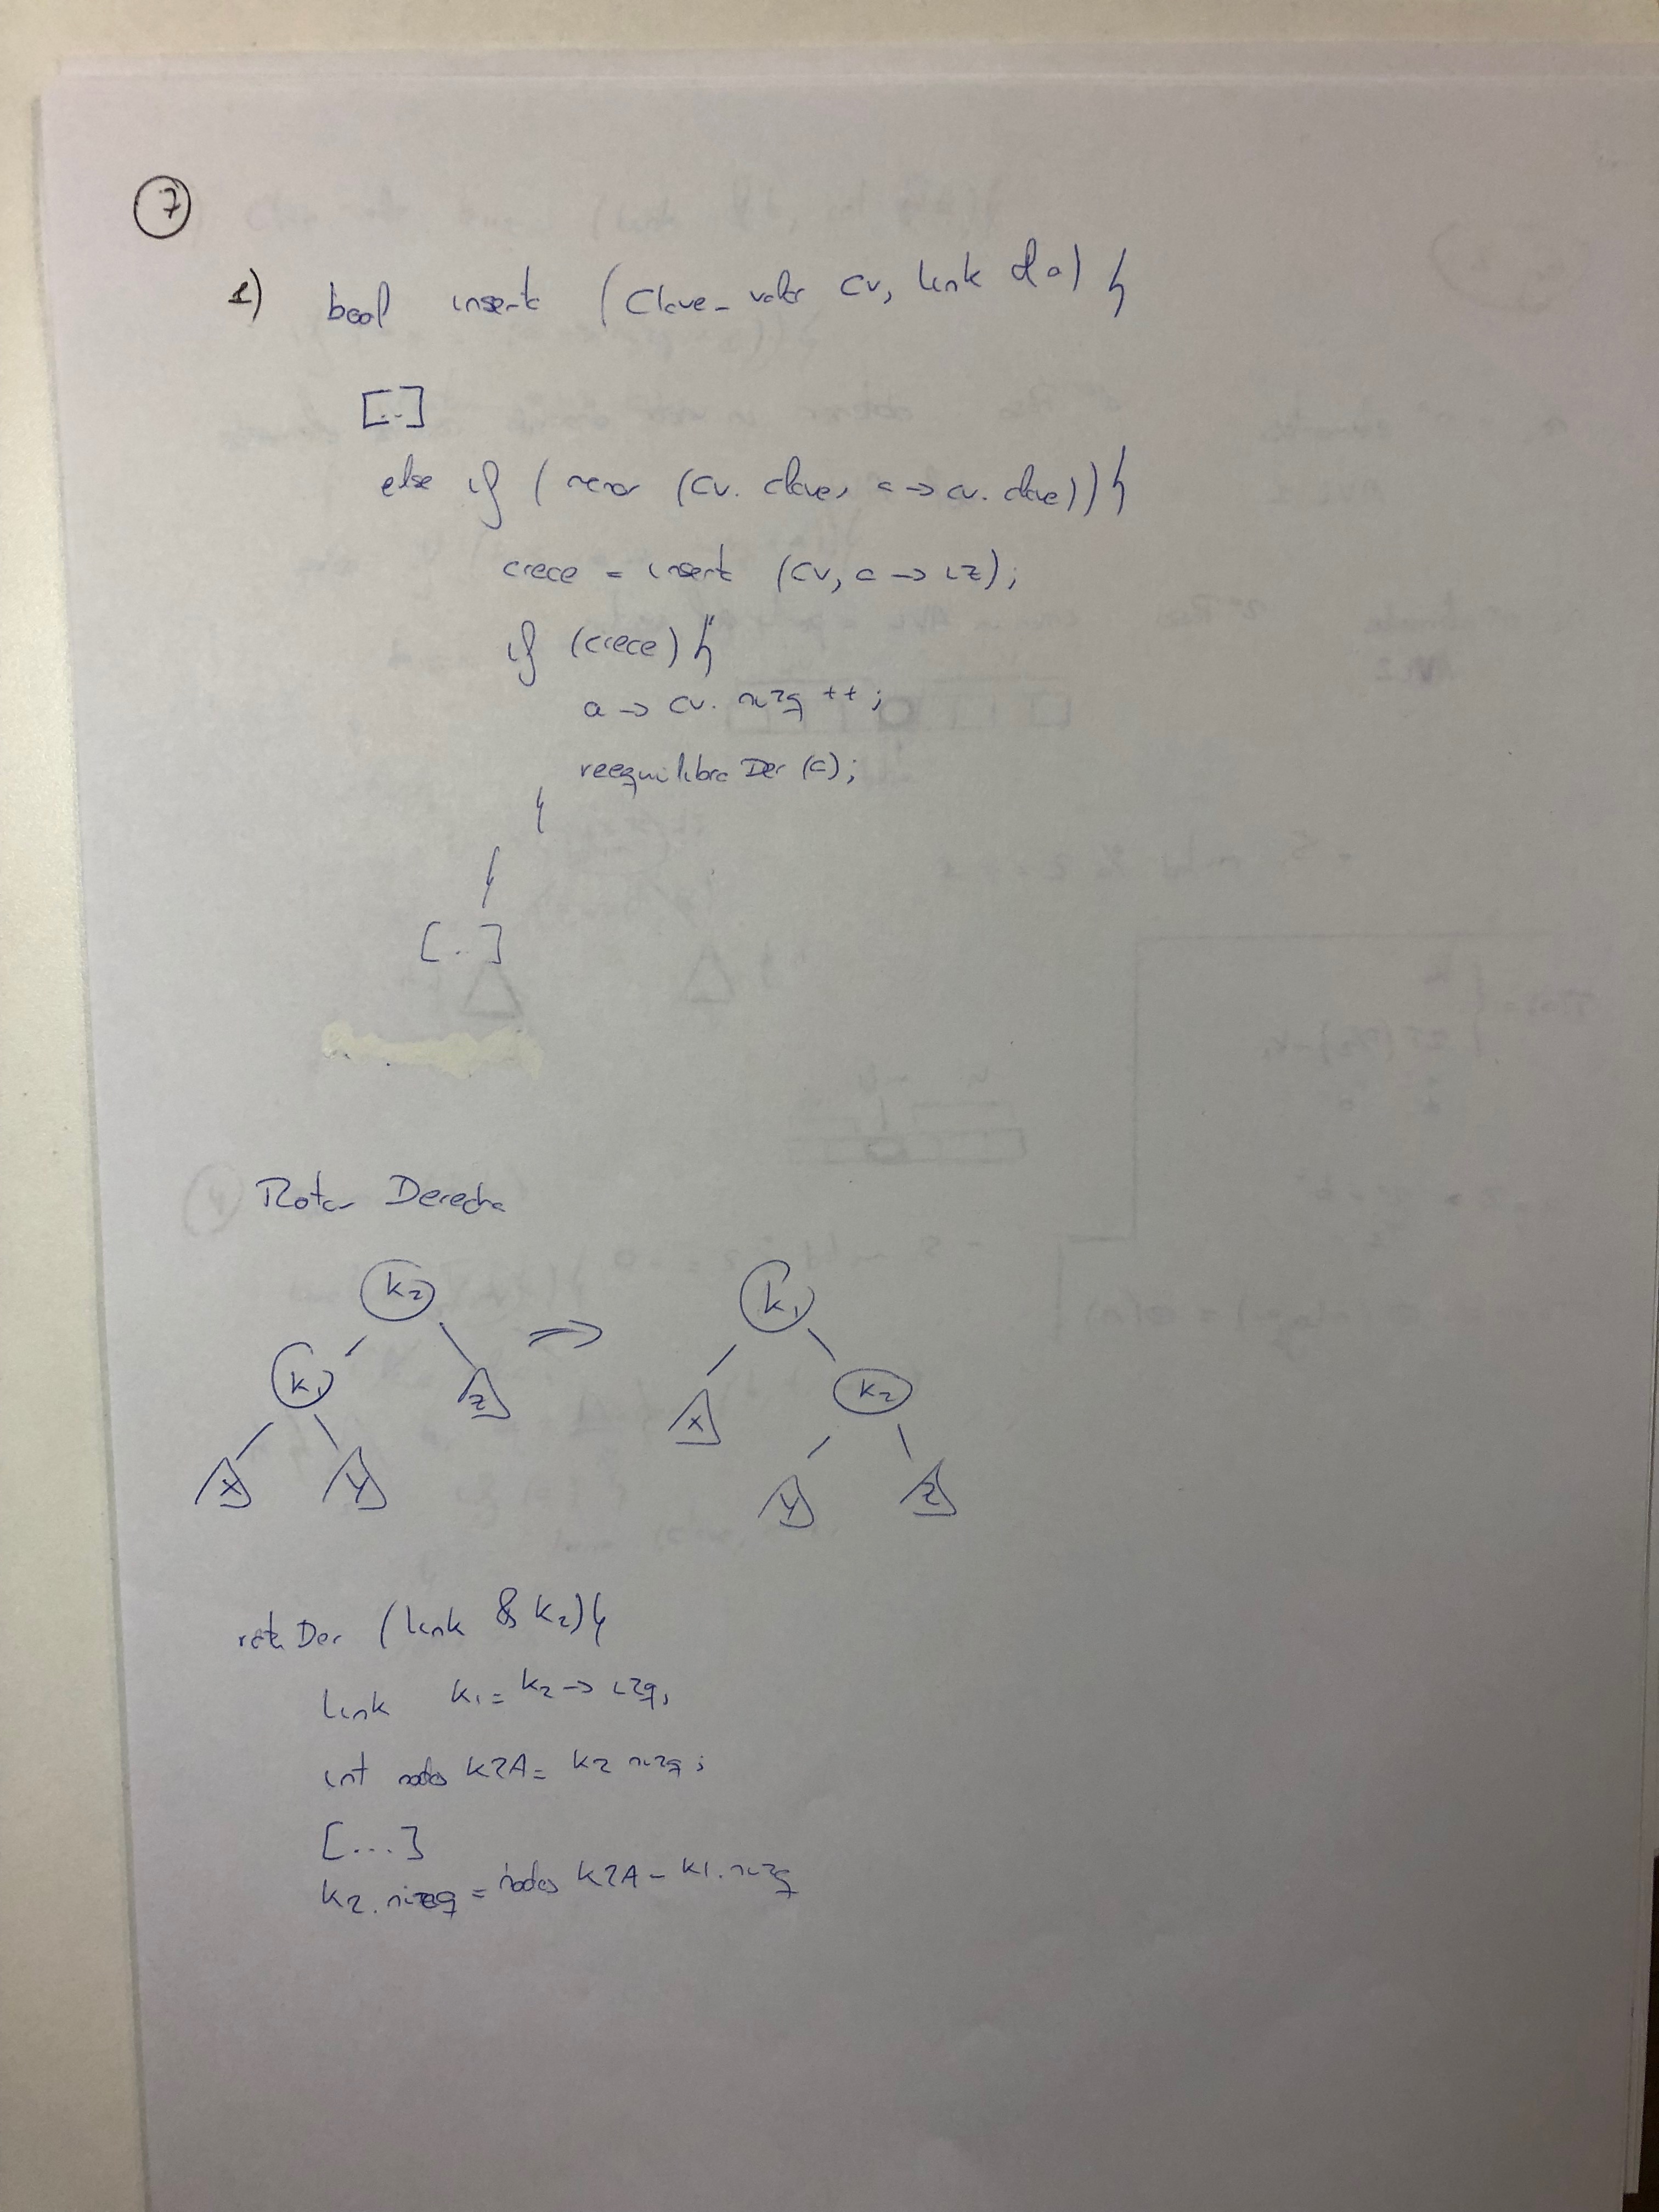 7
1) bool inserta (Clave_valor cv, link & a) {
[..]
else if (menor (cv. clave, a -> cv. clave)) {
crece = inserta (cv, a -> iz);
if (crece) {
a -> cv. nizq ++;
reequilibraDer (a);
}
}
[..]
Rotar Derecha
k2 ⇒ k1
k1 z x k2
x y y z
rotaDer (link & k2) {
link k1 = k2 -> izq;
int nodos k2A = k2 nizq;
[...]
k2. nizq = nodos k2A - k1. nizq